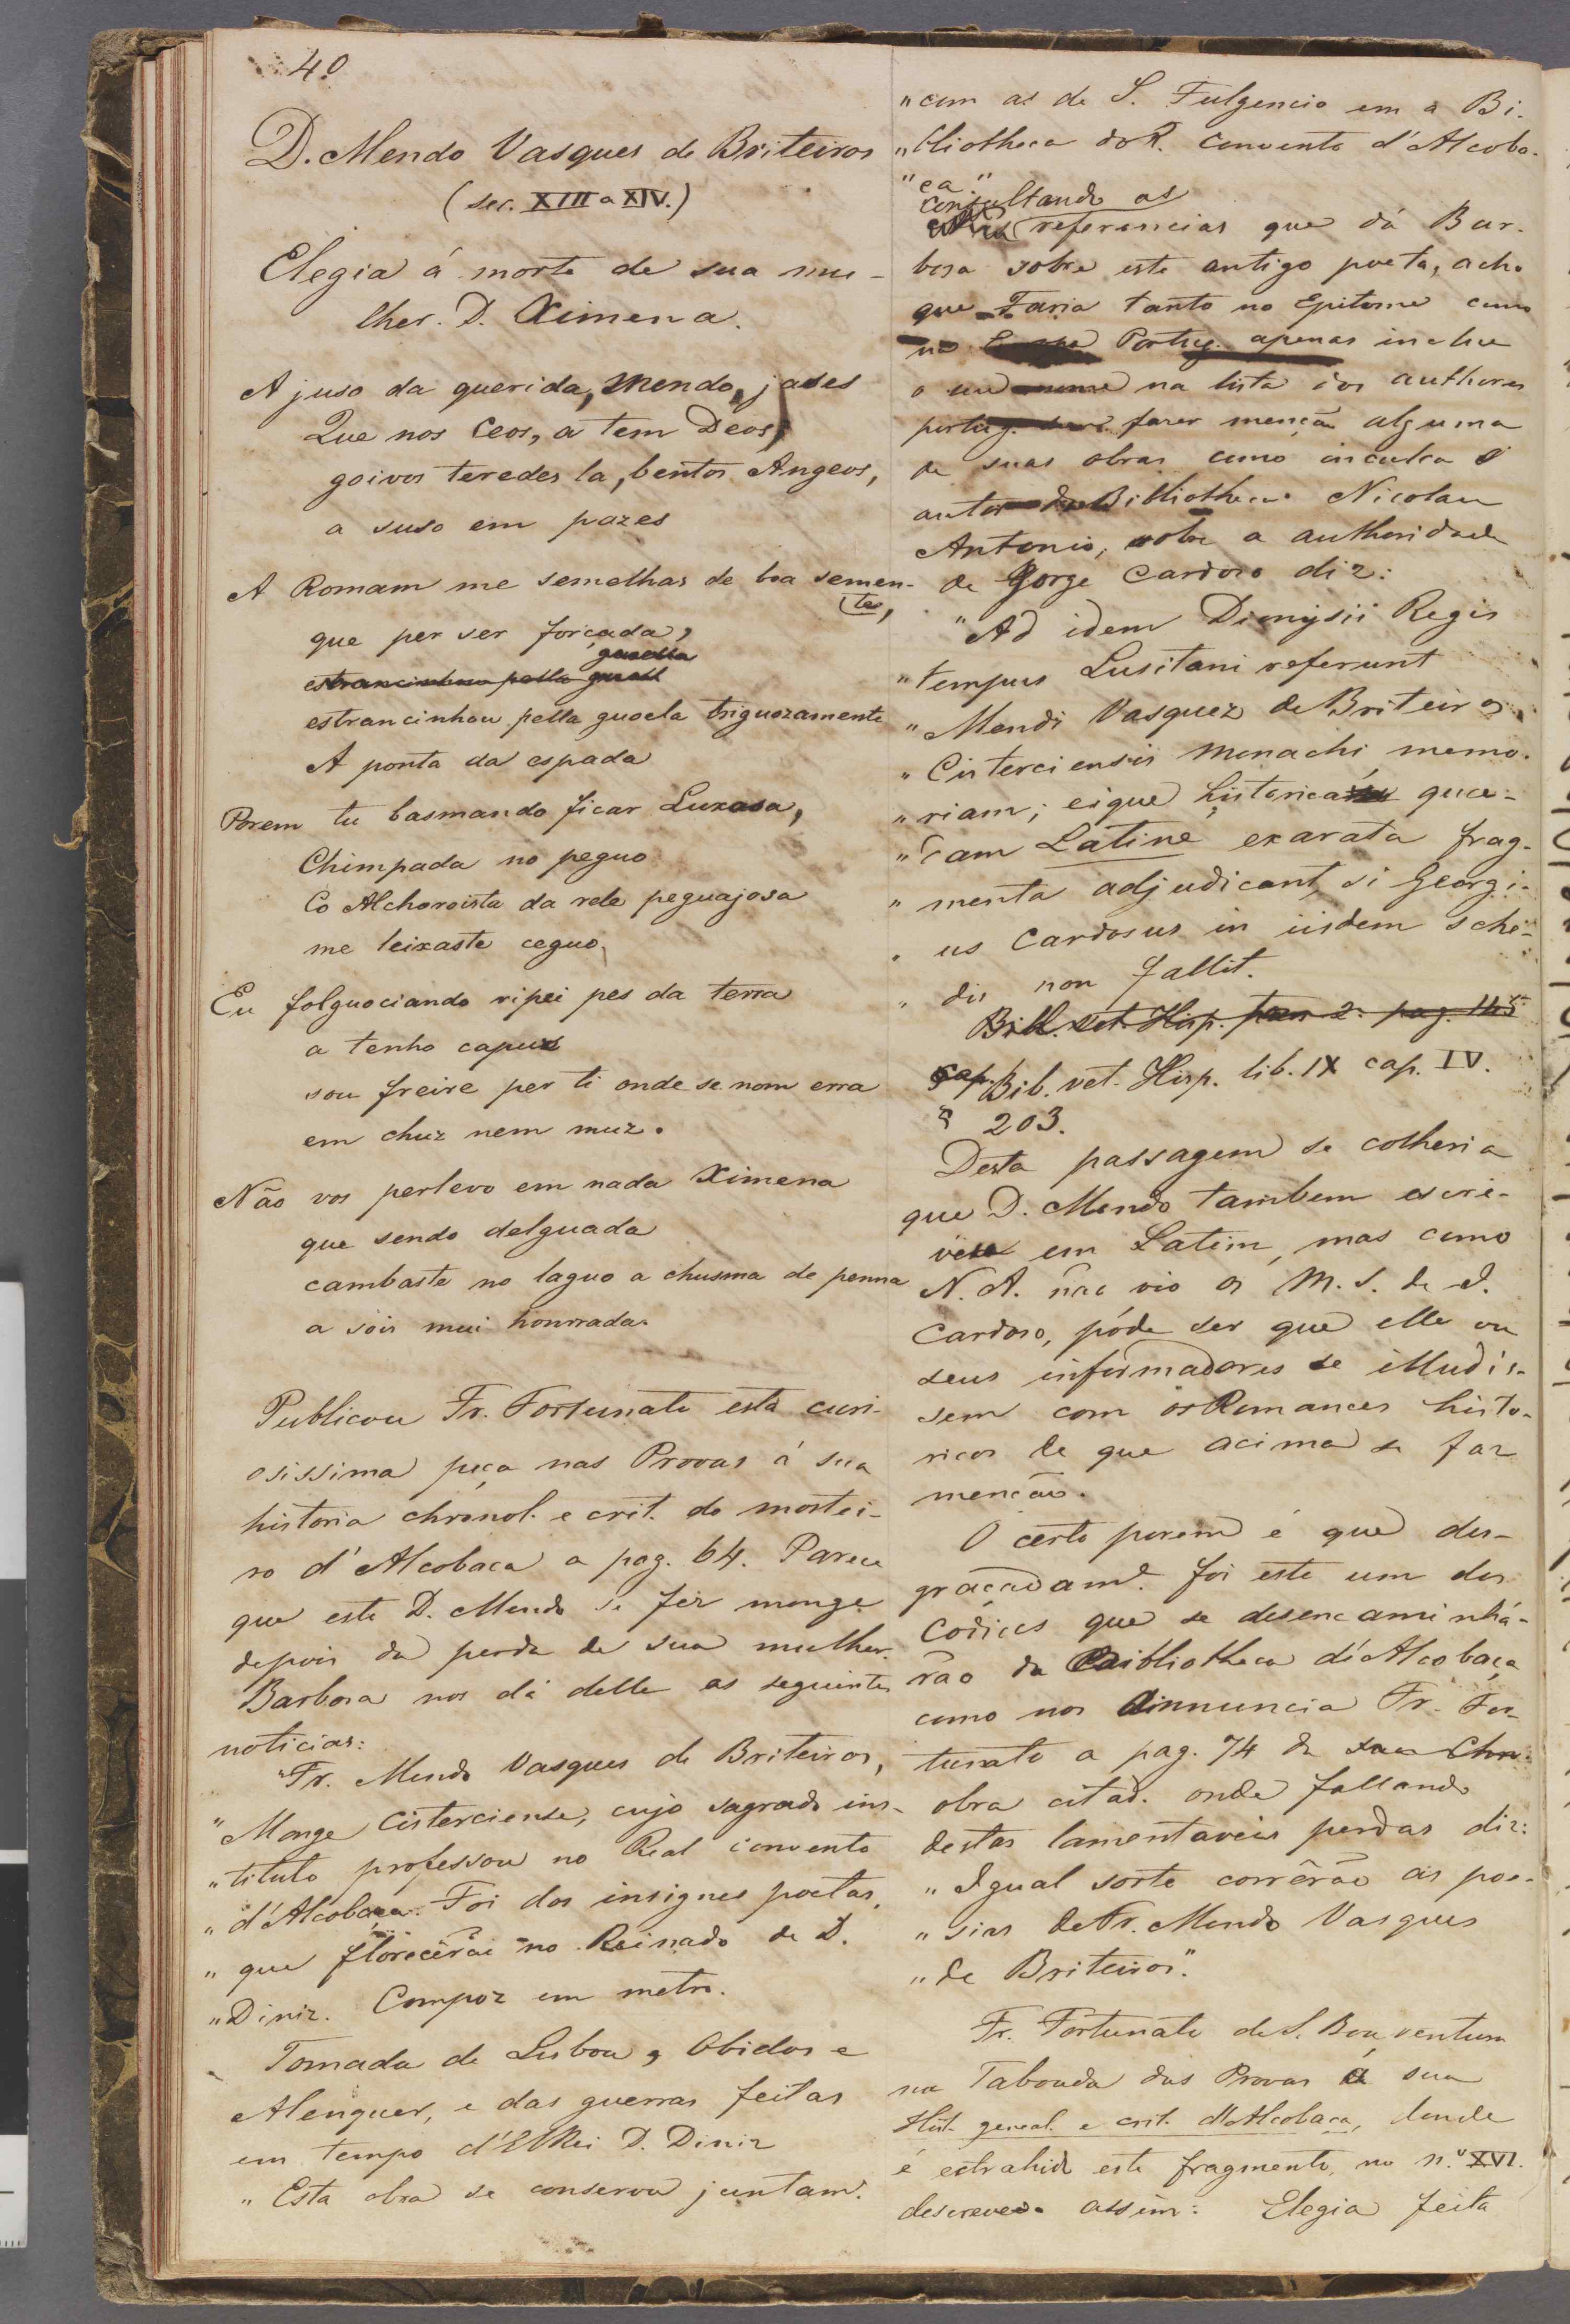 40
D. Mendo Vasques de Briteiros
(sec. XIII a XIV.)
Elegia á morte de sua mu-
lher. D. Ximena.
A juso da querida, Mendo, jades
Que nos Ceos, a tem Deos,
goivos teredes la, bentos Angeos,
a suso em pazes
A Romam me semelhas de boa semen-
te,
que per ser forçada,
guoella
estrancinhou pella
estrancinhou pella guoela triguozamente
A ponta da espada
Porem tu basmando ficar Luxosa,
Chimpada no peguo
Co Alchoroista da rede peguajosa
me leixaste ceguo,
Eu folguociando ripei pes da terra
a tenho capuz
sou freire per ti onde se nom erra
em chuz nem muz.
Não vos perlevo em nada Ximena
que sendo delguada
cambaste no laguo a chusma de penna
a sois mui honrrada.
Publicou Fr. Fortunato esta curi-
osissima peça nas Provas á sua
historia chronol. e crit. do mostei-
ro d'Alcobaca a pag. 64. Parece
que este D. Mendo se fez monge
depois da perda de sua mulher.
Barbosa nos dá delle as seguintes
noticias:
"Fr. Mendo Vasques de Briteiros,
"Monge Cisterciense, cujo sagrado ins-
"tituto professou no Real convento
"d'Alcobaca. Foi dos insignes poetas,
"que florecêrão no Reinado de D.
"Diniz. Compoz em metro.
Tomada de Lisboa, Obidos e
Alenquer, e das guerras feitas
em tempo d'ElRei D. Diniz
"Esta obra se conserva juntam.
"com as de S. Fulgencio em a Bi-
"bliotheca do R. Convento d'Alcoba-
"ca."
consultando as
referencias que dá Bar-
bosa sobre este antigo poeta, acho
que Faria tanto no Epitome como
na Portug. apenas inclue
o seu nome na lista dos authores
portug. sem fazer menção alguma
de suas obras como inculca o
autor da Bibliotheca. Nicolau
Antonio, sobre a authoridade
de Jorge Cardoso diz:
"Ad idem Dionysii Regis
"tempus Lusitani referunt
"Mendi Vasquez de Briteiros
"Cisterciensis Monachi memo-
"riam; eique historica quæ-
"dam Latine exarata frag-
"menta adjudicant, si Georgi-
"us Cardosus in iisdem sche-
"dis non fallit.
Bibl. vet. Hisp. tom 2. pag.
cap. Bib. vet. Hisp. lib. IX cap. IV.
203.
Desta passagem se colheria
que D. Mendo tambem escre-
vera em Latim, mas como
N. A. não vio os M.S. de J.
Cardoso, póde ser que elle ou
seus informadores se illudis-
sem com os Romances histo-
ricos de que acima se faz
menção.
O certo porem é que des-
graçadam.e foi este um dos
Codices que se desencaminhá-
rão da Bibliotheca d'Alcobaça
como nos annuncia Fr. For-
tunato a pag. 74 da sua Chon.
obra citad. onde fallando
destas lamentaveis perdas diz:
"Igual sorte corrêrão as poe-
"sias de Fr. Mendo Vasques
"de Briteiros."
Fr. Fortunato de S. Boaventura
na Taboada das Provas á sua
Hist. geneal. e crit. d'Alcobaca, donde
é extrahido este fragmento, no n.º XVI.
descreve-o assim: Elegia feita